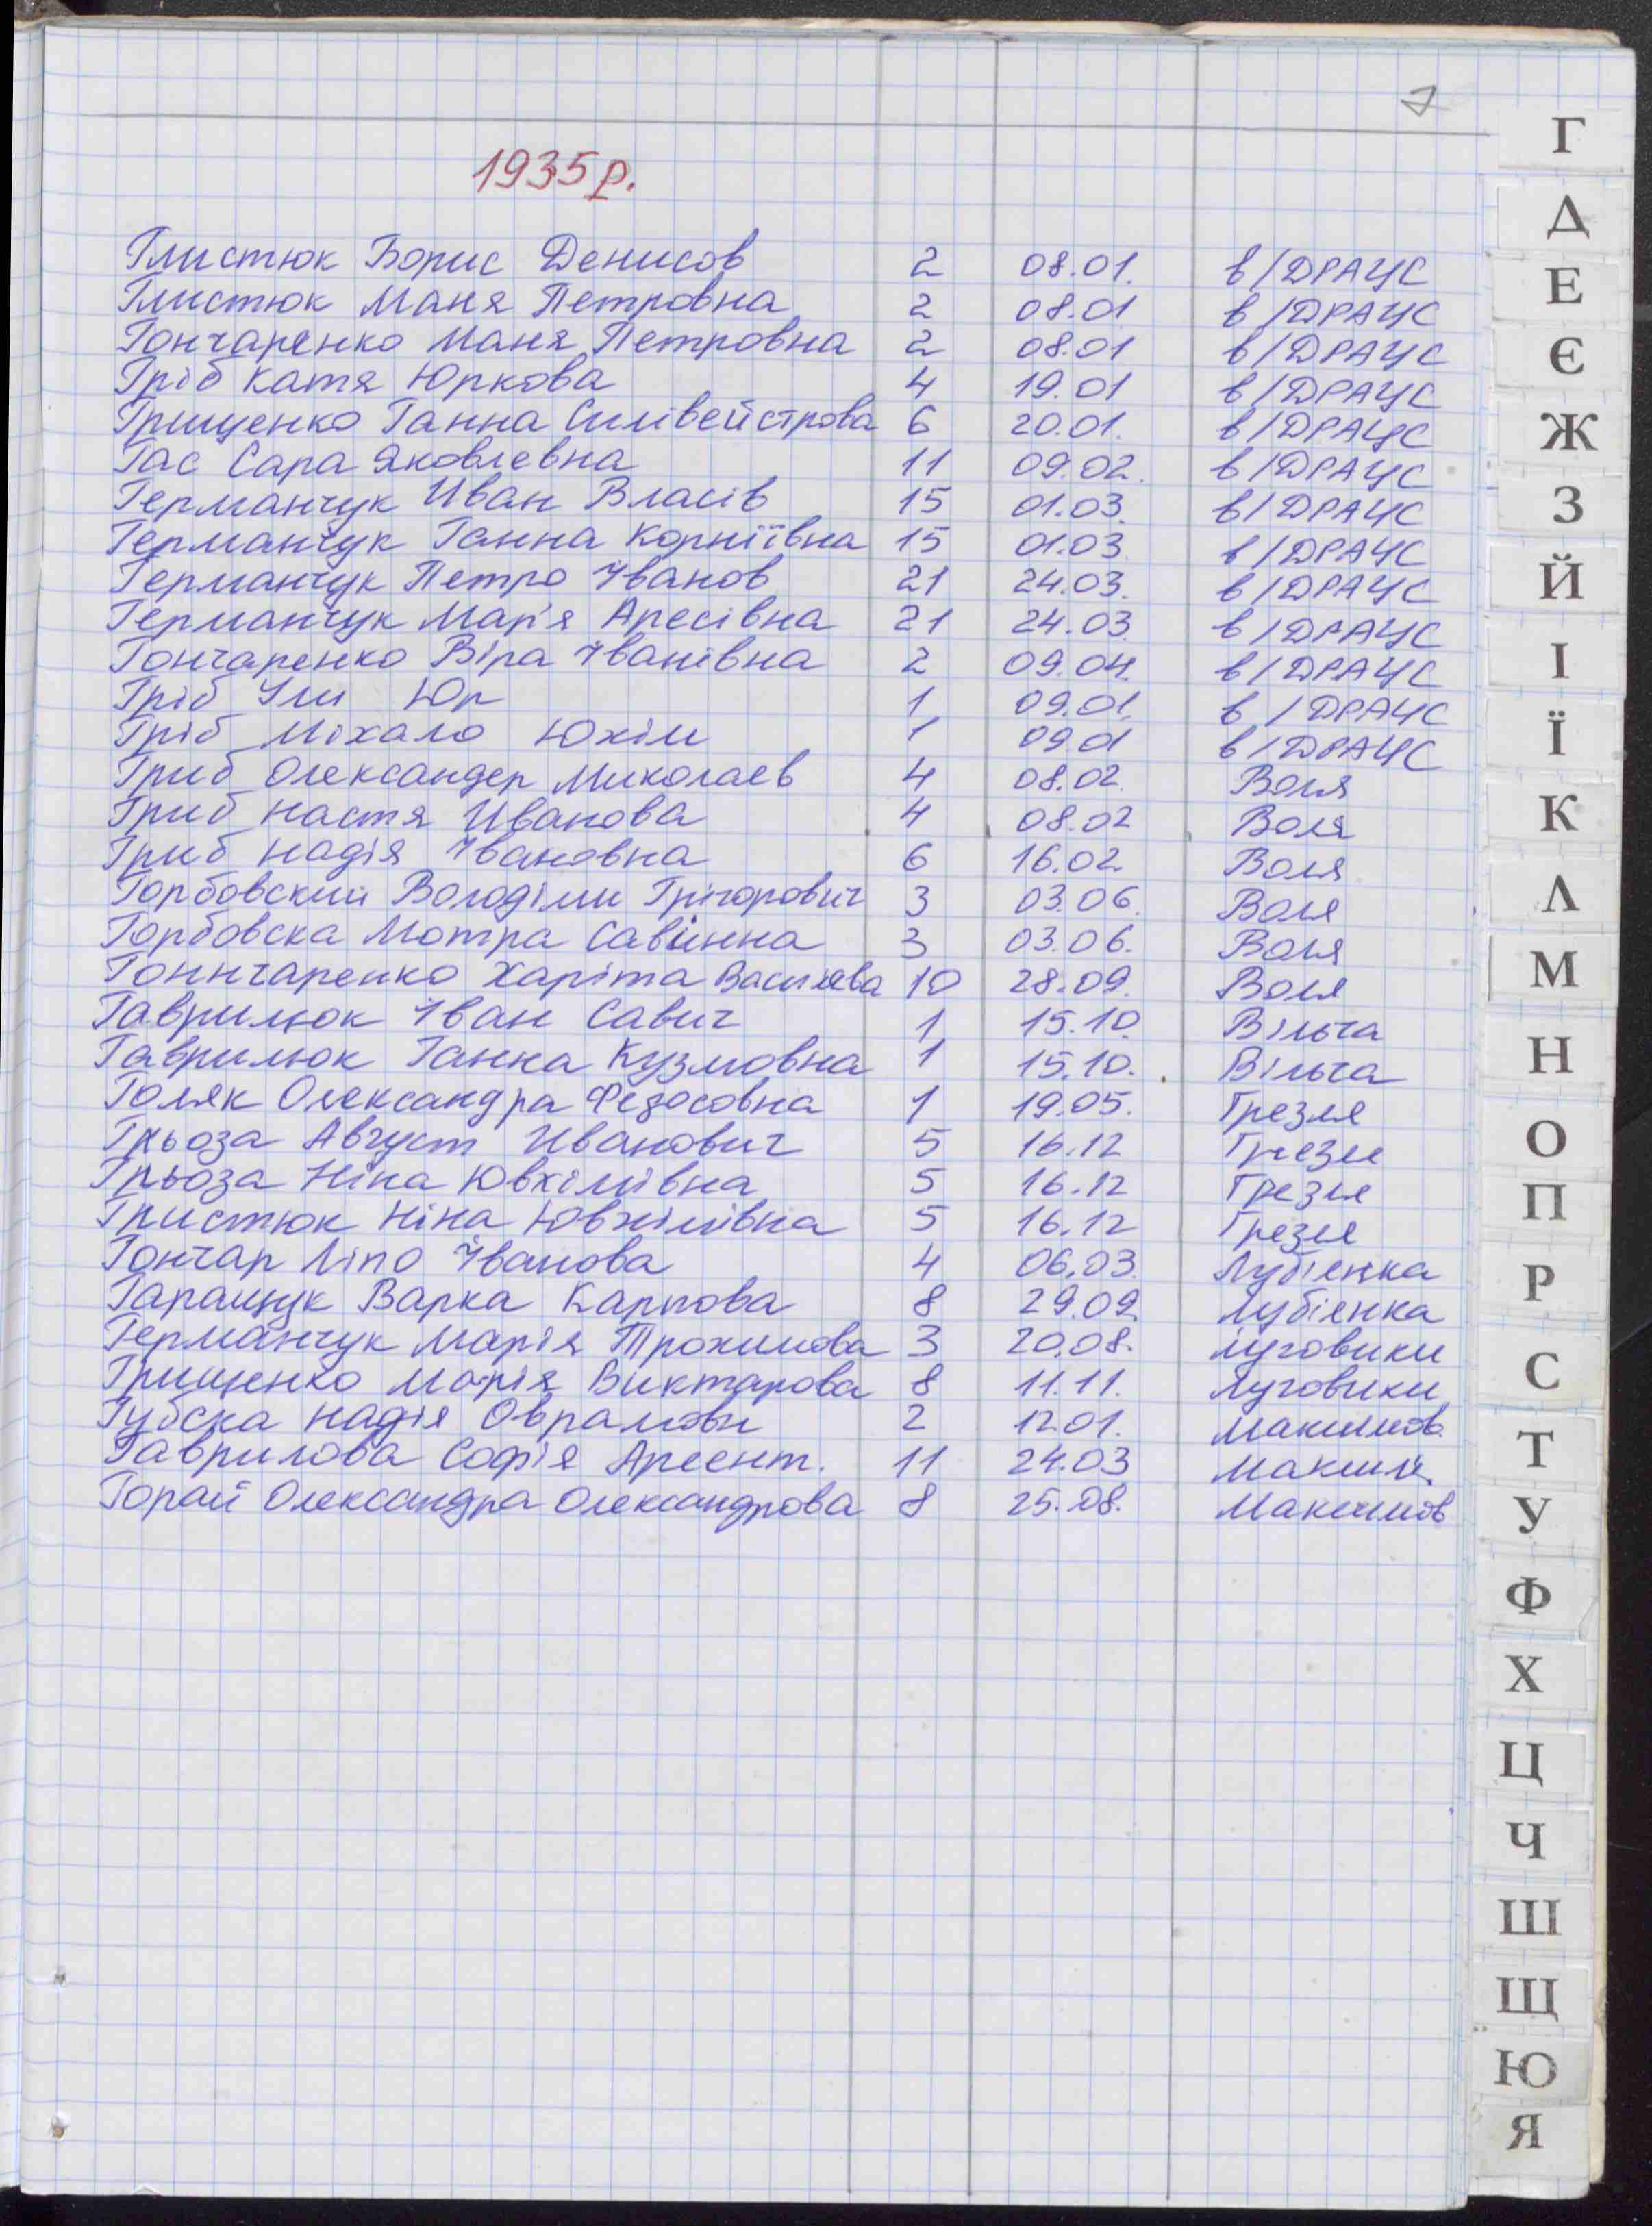 1935 р.
Глистюк Борис Денисов 2 08.01. в/ДРАЦС
Глистюк Маня Петровна 2 08.01 в/ДРАЦС
Гончаренко Маня Петровна 2 08.01 в/ДРАЦС
Гріб Катя Юркова 4 19.01 в/ДРАЦС
Грищенко Ганна Силівейстрова 6 20.01. в/ДРАЦС
Гас Сара Яковлевна 11 09.02. в/ДРАЦС
Германчук Иван Власів 15 01.03. в/ДРАЦС
Германчук Ганна Корніївна 15 01.03. в/ДРАЦС
Германчук Петро Іванов 21 24.03. в/ДРАЦС
Германчук Мар'я Аресівна 21 24.03. в/ДРАЦС
Гончаренко Віра Іванівна 2 09.04. в/ДРАЦС
Гріб Юр 1 09.01. в/ДРАЦС
Гріб Міхало Юхім 1 09.01 в/ДРАЦС
Гриб Олександер Миколаев 4 08.02. Воля
Гриб Настя Иванова 4 08.02 Воля
Гриб Надія Івановна 6 16.02. Воля
Горбовский Володіми Грігорович 3 03.06. Воля
Горбовска Мотра Савінна 3 03.06. Воля
Гоннчаренко Харіта Василева 10 28.09. Воля
Гаврилюк Іван Савич 1 15.10. Вільча
Гаврилюк Ганна Кузмовна 1 15.10. Вільча
Голяк Олександра Федосовна 1 19.05. Грезля
Грьоза Август Иванович 5 16.12 Грезле
Грьоза Ніна Ювхімівна 5 16.12 Грезля
Гристюк Ніна Ювхімівна 5 16.12 Грезля
Гончар Ліпо Іванова 4 06.03. Лубіенка
Гаращук Варка Карпова 8 29.09. Лубіенка
Германчук Марія Трохимова 3 20.08. Луговики
Грищенко Марія Виктарова 8 11.11. Луговики
Губска Надія Оврамовн 2 12.01. Максимов.
Гаврилова Софія Арсент. 11 24.03
Горай Олександра Олександрова 8 25.08. Максимов
Г
Д
Е
Є
Ж
З
Й
І
Ї
К
Л
М
Н
О
П
Р
С
Т
У
Ф
Х
Ц
Ч
Ш
Щ
Ю
Я